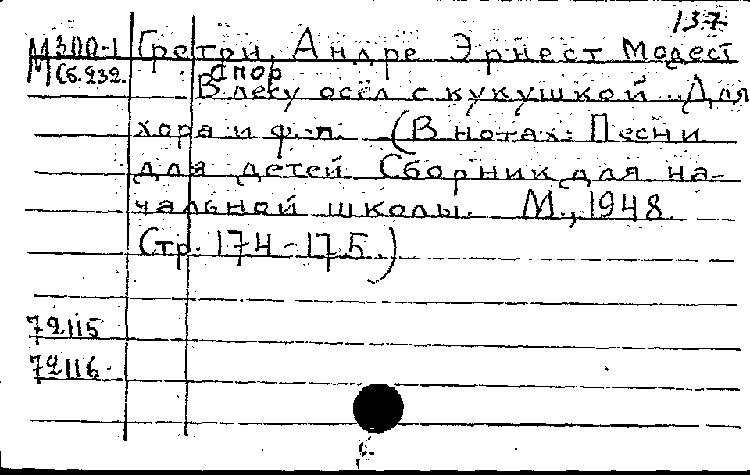 137
М300-1 Гретри, Андре Эрнест Модест
М Сб.232. Спор
В лесу осёл с кукушкой. Для
хора и ф.-п. (В нотах: Песни
для детей. Сборник для на-
чальной школы. М., 1948.
Стр. 174-175.)
72115
72116.